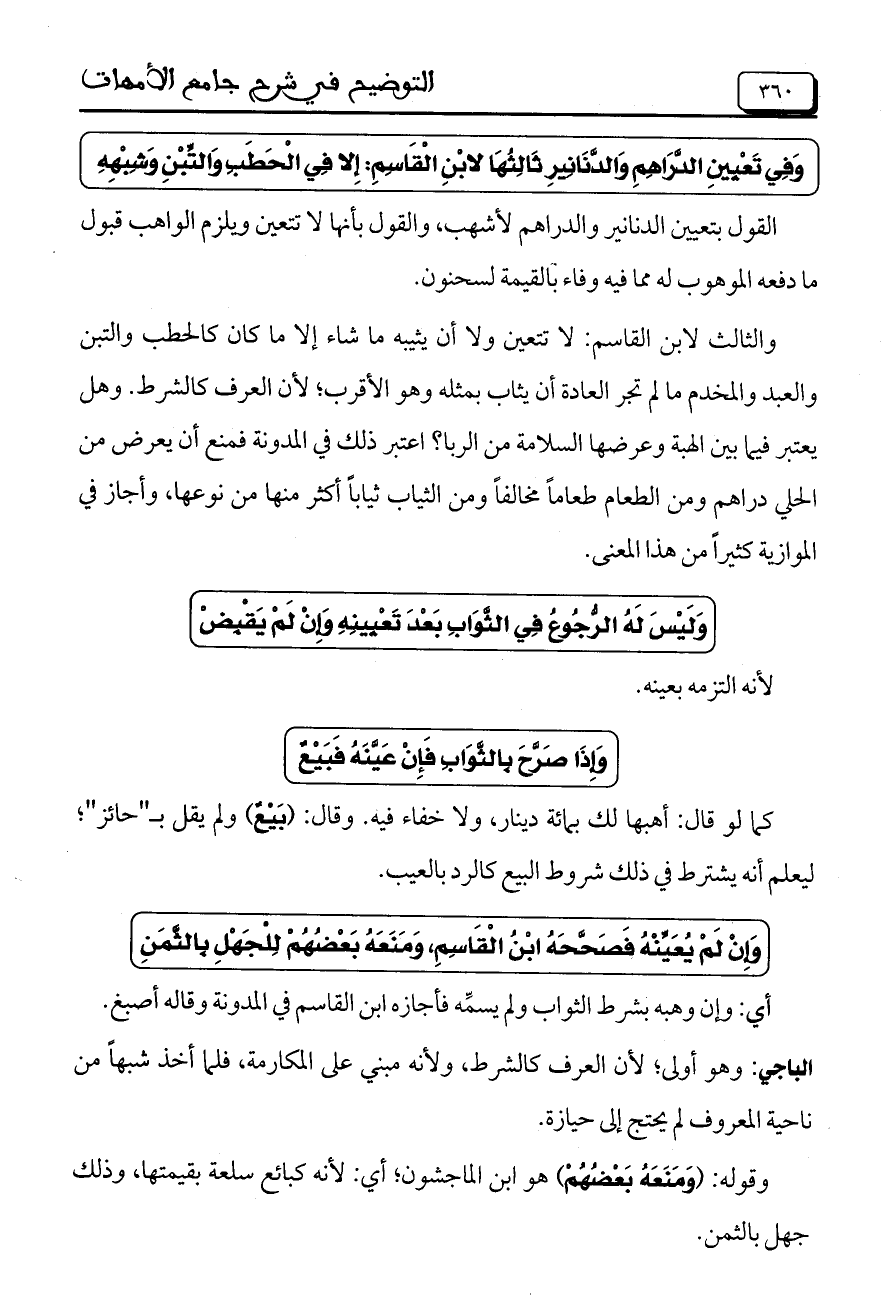 ٣٦٠
التوضيح في شرح جامع الأمهات
وَفِي تَعْيِينِ الدَّرَاهِمِ وَالدَّنَانِيرِ ثَالِثُهَا لابْنِ الْقَاسِمِ: إِلا فِي الْحَطَبِ وَالتِّبْنِ وَشِبْهِهِ
القول بتعيين الدنانير والدراهم لأشهب، والقول بأنها لا تتعين ويلزم الواهب قبول
ما دفعه الموهوب له مما فيه وفاء بالقيمة لسحنون.
والثالث لابن القاسم: لا تتعين ولا أن يثيبه ما شاء إلا ما كان كالحطب والتبن
والعبد والمخدم ما لم تجر العادة أن يثاب بمثله وهو الأقرب؛ لأن العرف كالشرط. وهل
يعتبر فيما بين الهبة وعرضها السلامة من الربا؟ اعتبر ذلك في المدونة فمنع أن يعرض من
الحلي دراهم ومن الطعام طعاماً مخالفاً ومن الثياب ثياباً أكثر منها من نوعها، وأجاز في
الموازية كثيراً من هذا المعنى.
وَلَيْسَ لَهُ الرُّجُوعُ فِي الثَّوَابِ بَعْدَ تَعْيِينِهِ وَإِنْ لَمْ يَقْبِضْ
لأنه التزمه بعينه.
وَإِذَا صَرَّحَ بِالثَّوَابِ فَإِنْ عَيَّنَهُ فَبَيْعٌ
كما لو قال: أهبها لك بمائة دينار، ولا خفاء فيه. وقال: (بَيْعٌ) ولم يقل بـ"حائز"؛
ليعلم أنه يشترط في ذلك شروط البيع كالرد بالعيب.
وَإِنْ لَمْ يُعَيِّنْهُ فَصَحَّحَهُ ابْنُ الْقَاسِمِ، وَمَنَعَهُ بَعْضُهُمْ لِلْجَهْلِ بِالثَّمَنِ
أي: وإن وهبه بشرط الثواب ولم يسمِّه فأجازه ابن القاسم في المدونة وقاله أصبغ.
الباجي: وهو أولى؛ لأن العرف كالشرط، ولأنه مبني على المكارمة، فلما أخذ شبهاً من
ناحية المعروف لم يحتج إلى حيازة.
وقوله: (وَمَنَعَهُ بَعْضُهُمْ) هو ابن الماجشون؛ أي: لأنه كبائع سلعة بقيمتها، وذلك
جهل بالثمن.